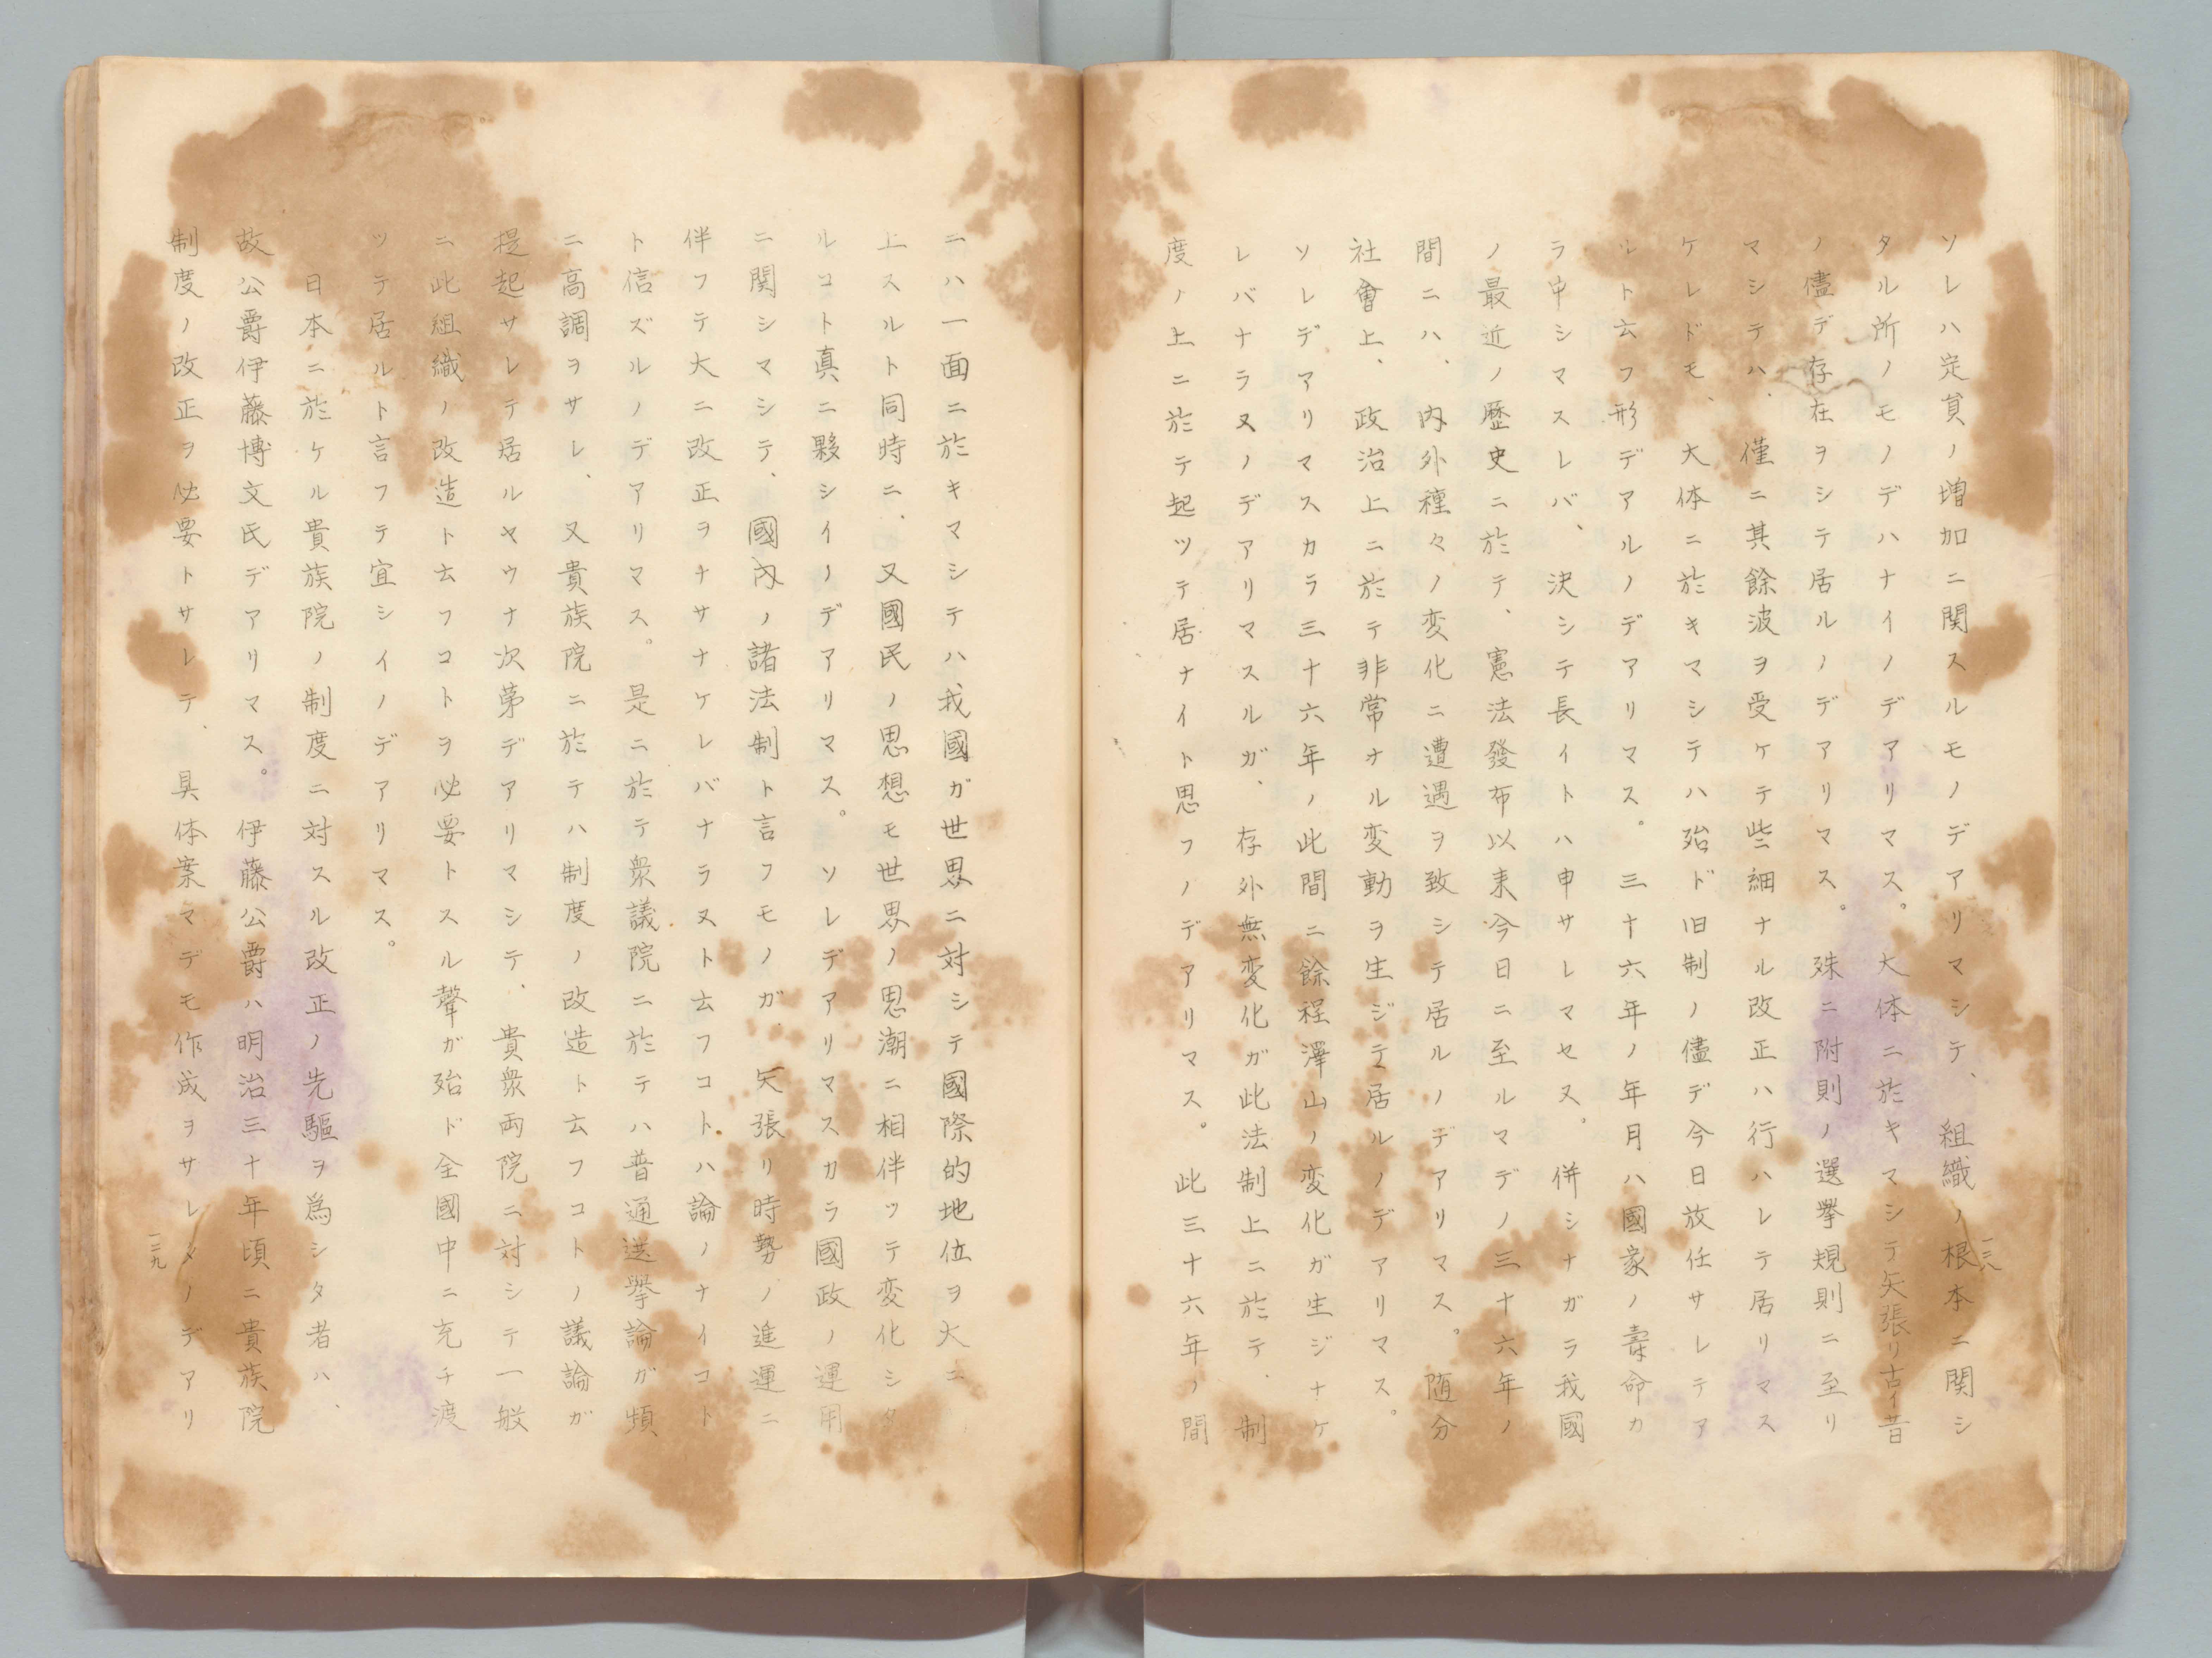 ソレハ定員ノ増加ニ関スルモノデアリマシテ、組織ノ根本ニ関シ
タル所ノモノデハナイノデアリマス。大体ニ於キマシテ矢張リ古イ昔
ノ儘デ存在ヲシテ居ルノデアリマス。殊ニ附則ノ選挙規則ニ至リ
マシテハ、僅ニ其餘波ヲ受ケテ些細ナル改正ハ行ハレテ居リマス
ケレドモ、大体ニ於キマシテハ殆ド旧制ノ儘デ今日放任サレテア
ルト云フ形デアルノデアリマス。三十六年ノ年月ハ國家ノ壽命カ
ラ申シマスレバ、決シテ長イトハ申サレマセヌ。併シナガラ我國
ノ最近ノ歴史ニ於テ、憲法發布以来今日ニ至ルマデノ三十六年ノ
間ニハ、内外種々ノ変化ニ遭遇ヲ致シテ居ルノデアリマス。随分
社會上、政治上ニ於テ非常ナル変動ヲ生ジテ居ルノデアリマス。
ソレデアリマスカラ三十六年ノ此間ニ餘程澤山ノ変化ガ生ジナケ
レバナラヌノデアリマスルガ、存外無変化ガ此法制上ニ於テ、制
度ノ上ニ於テ起ツテ居ナイト思フノデアリマス。此三十六年ノ間
一三八
ニハ一面ニ於キマシテハ我國ガ世界ニ対シテ國際的地位ヲ大ニ
上スルト同時ニ、又國民ノ思想モ世界ノ思潮ニ相伴ツテ変化シタ
ルコト真ニ夥シイノデアリマス。ソレデアリマスカラ國政ノ運用
ニ関シマシテ、國内ノ諸法制ト言フモノガ矢張リ時勢ノ進運ニ
伴フテ大ニ改正ヲナサナケレバナラヌト云フコトハ論ノナイコト
ト信ズルノデアリマス。是ニ於テ衆議院ニ於テハ普通選挙論ガ頻
ニ高調ヲサレ、又貴族院ニ於テハ制度ノ改造ト云フコトノ議論ガ
提起サレテ居ルヤウナ次第デアリマシテ、貴衆両院ニ対シテ一般
ニ此組織ノ改造ト云フコトヲ必要トスル聲ガ殆ド全國中ニ充チ渡
ツテ居ルト言フテ宜シイノデアリマス。
日本ニ於ケル貴族院ノ制度ニ対スル改正ノ先驅ヲ爲シタ者ハ、
故公爵伊藤博文氏デアリマス。伊藤公爵ハ明治三十年頃ニ貴族院
制度ノ改正ヲ必要トサレテ、具体案マデモ作成ヲサレタノデアリ
一三九